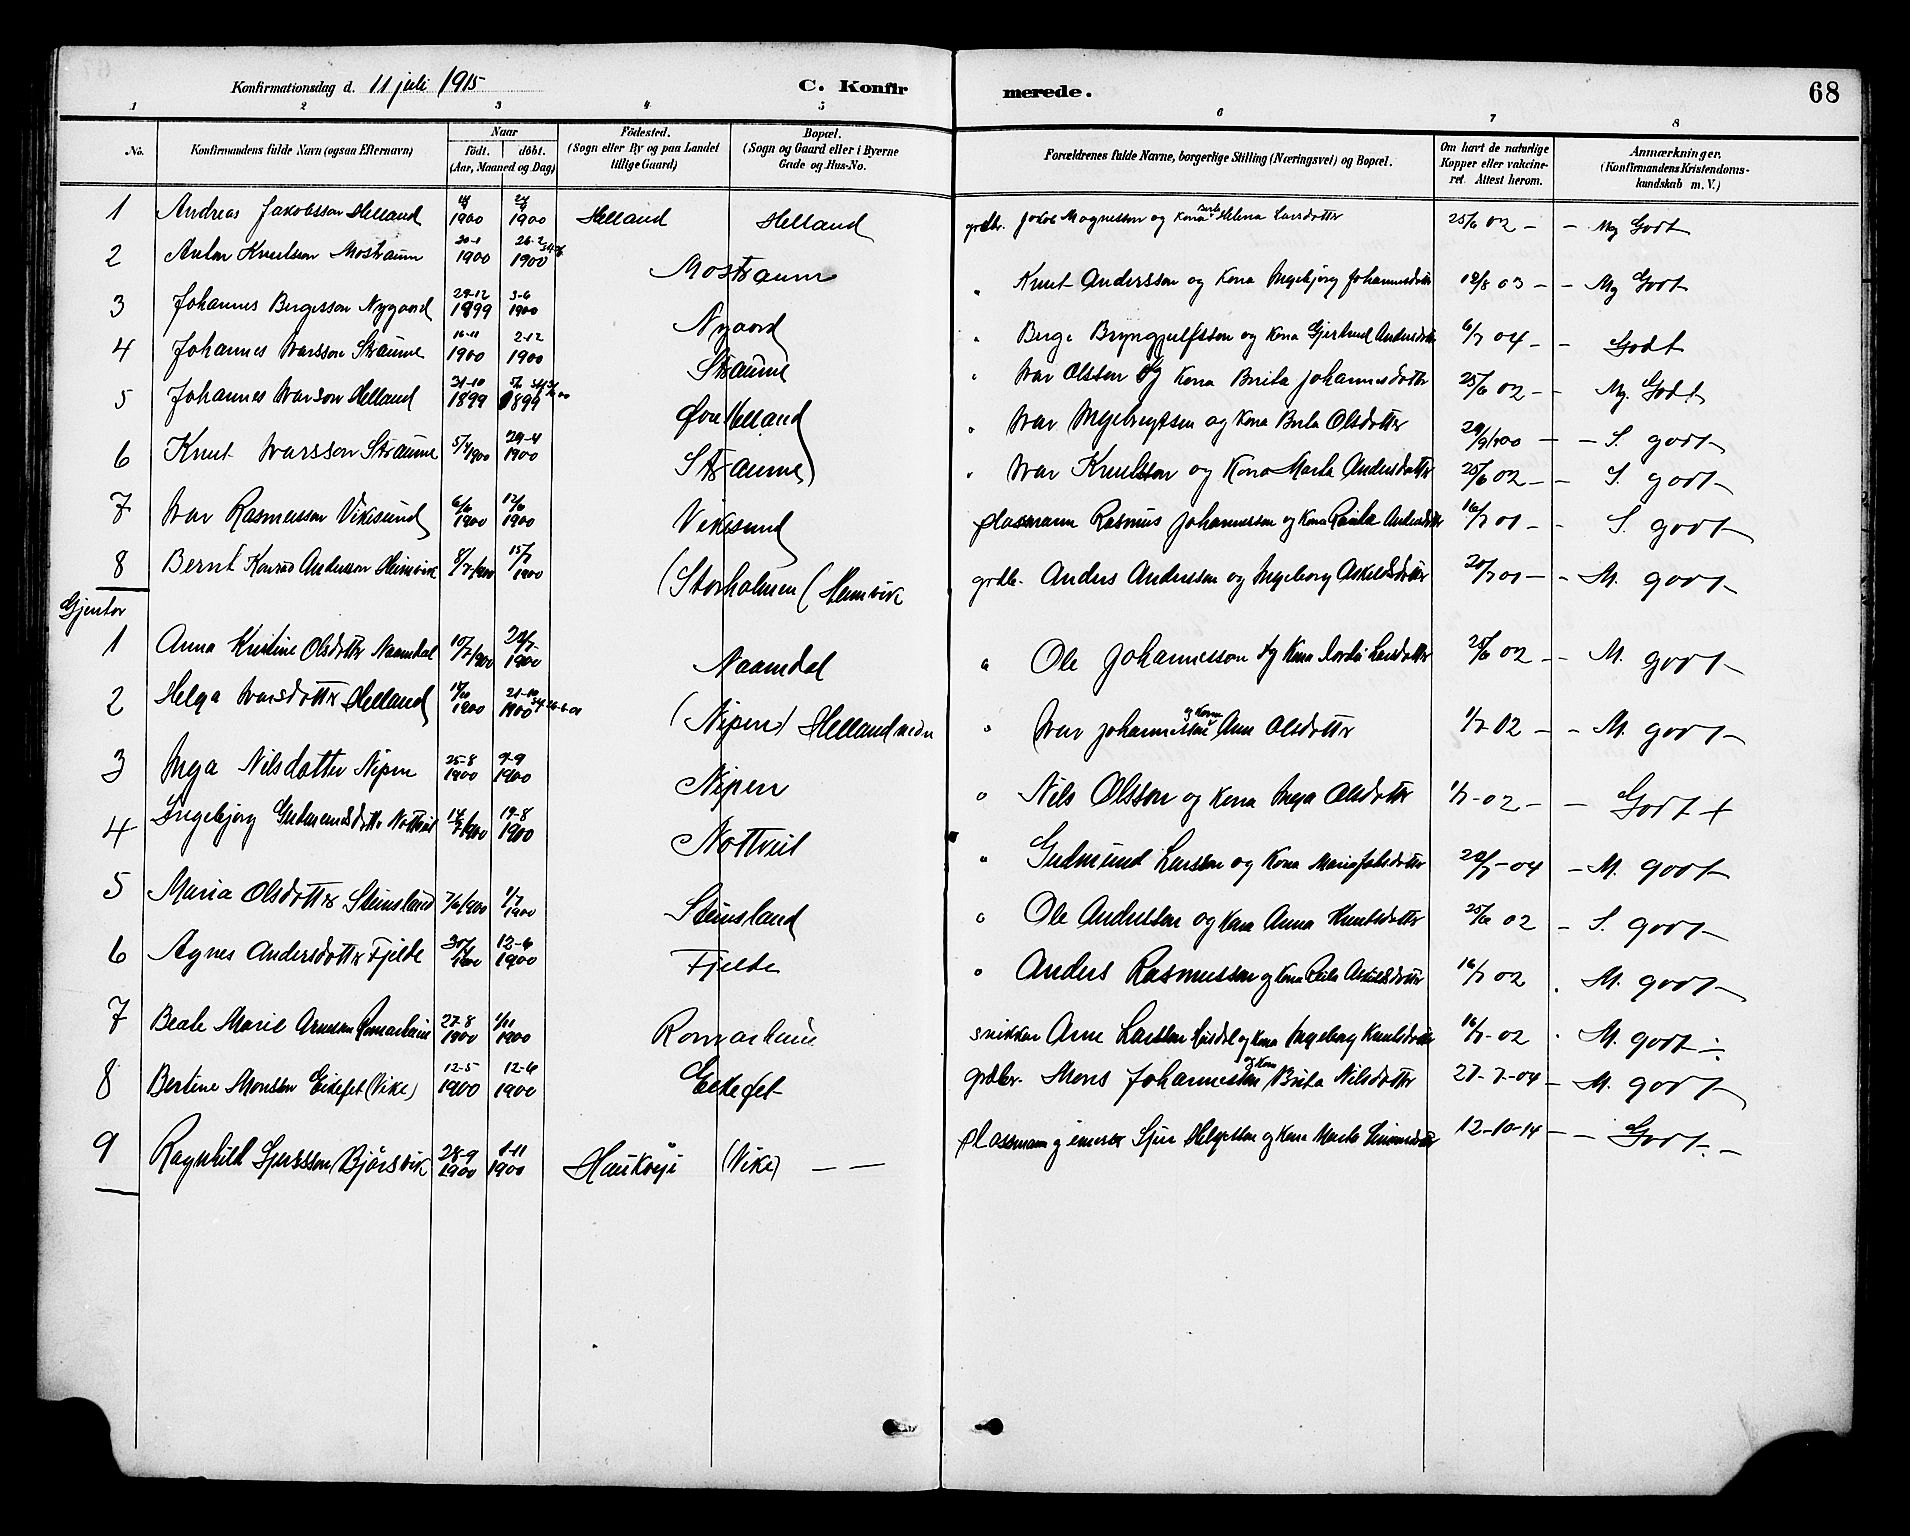 Konfirmationsdag d. 11 juli 1915 C. Konfirmerede. 68
1 2 3 4 5 6 7 8
No. Konfirmandens fulde Navn (ogsaa Efternavn) Naar födt. döbt. (Aar, Maaned og Dag) Födested. (Sogn eller By og paa Landet tillige Gaard) Bopæl. (Sogn og Gaard eller i Byerne Gade og Hus-No. Forældrenes fulde Navne, borgerlige Stilling (Næringsvei) og Bopæl. Om havt de naturlige Kopper eller vakcineret. Attest herom. Anmærkninger. (Konfirmandens Kristendomskundskab m. V.)
1 Andreas Jakobsson Helland 1900 1900 Helland Helland grdbr. Jakob Magnesson og Kona Helena Larsdotter 25/6 02 - - Mg Godt
2 Anton Knutsson Mostraum 20-1 1900 26-2 1900 Mostraum " Knut Andersson og Kona Ingebjorg Johannesdotter 12/8 03 - - Mg Godt
3 Johannes Bergesson Nygaard 29-12 1899 3-6 1900 Nygaard " Berge Bryngjulfsson og Kona Gjertrud Andersdotter 6/7 04 - - Godt
4 Johannes Ivarsson Straume 16-11 1900 2-12 1900 Straume " Ivar Olsson og Kona Brita Johannesdotter 25/6 02 - - Mg. Godt
5 Johannes Ivarson Helland 31-10 1899 1899 Øvre Helland " Ivar Ingebregtsen og Kona Brita Olsdotter 29/9 1900 - - S. godt
6 Knut Ivarsson Straume 5/4 1900 29-4 1900 Straume " Ivar Knutsson og Kona Marta Andersdotter 25/6 02 - - S. godt
7 Ivar Rasmusson Vikesund 6/6 1900 12/6 1900 Vikesund plassmann Rasmus Johannesson og Kona Andersdotter 16/7 01 - - S. godt
8 Bernt Konrad Andersson Heimvik 8/7 1900 15/7 1900 (Storholmen (Heimvik grdb. Anders Andersson og Ingeborg Askelsdotter 20/7 01 - - M. godt
Gjentor
1 Anna Kristine Olsdotter Naamdal 10/7 1900 22/7 1900 Naamdal " Ole Johannesson og Kona Larsdotter 25/6 02 - - M. godt
2 Helga Ivarsdotter Helland 1900 21-10 1900 (Nipen) Helland nedre " Ivar Johannessen og Kona Anna Olsdotter 1/7 02 - - M. godt
3 Inga Nilsdotter Nipen 25-8 1900 9-9 1900 Nipen " Nils Olsson og Kona Inga Olsdotter 1/7 02 - - Godt +
4 Ingebjorg Gudmundsdotter Nottveit 1900 19-8 1900 Nottveit " Gudmund Larsson og Kona Maria 22/7 04 - M. godt
5 Maria Olsdotter Steinsland 7/6 1900 1/7 1900 Steinsland " Ole Andersson og Kona Anna Knutsdotter 25/6 02 - S. godt
6 Agnes Andersdotter Fjelde 1900 12-6 1900 Fjelde " Anders Rasmusson og Kona Askelsdotter 16/7 02 . M. godt
7 Beate Marie Arnesen Romarheim 27-8 1900 1/11 1900 Romarheim snikkar Arne Larsson og Kona Ingeborg Knutsdotter 16/7 02 . M. godt ÷
8 Bertine Monsen Eikefet (Vike) 12-5 1900 12-6 1900 Eikefet grdbr. Mons Johannessen og Kona Brita Nilsdotter 27-7-04 - M. godt
9 Ragnhild Sjursson Bjørsvik 28-9 1900 1-11 1900 Haukøyi (Vike) - - plassmann Sjur Helgesson og Kona Marta Simonsdotter 12-10-14 - - Godt. -